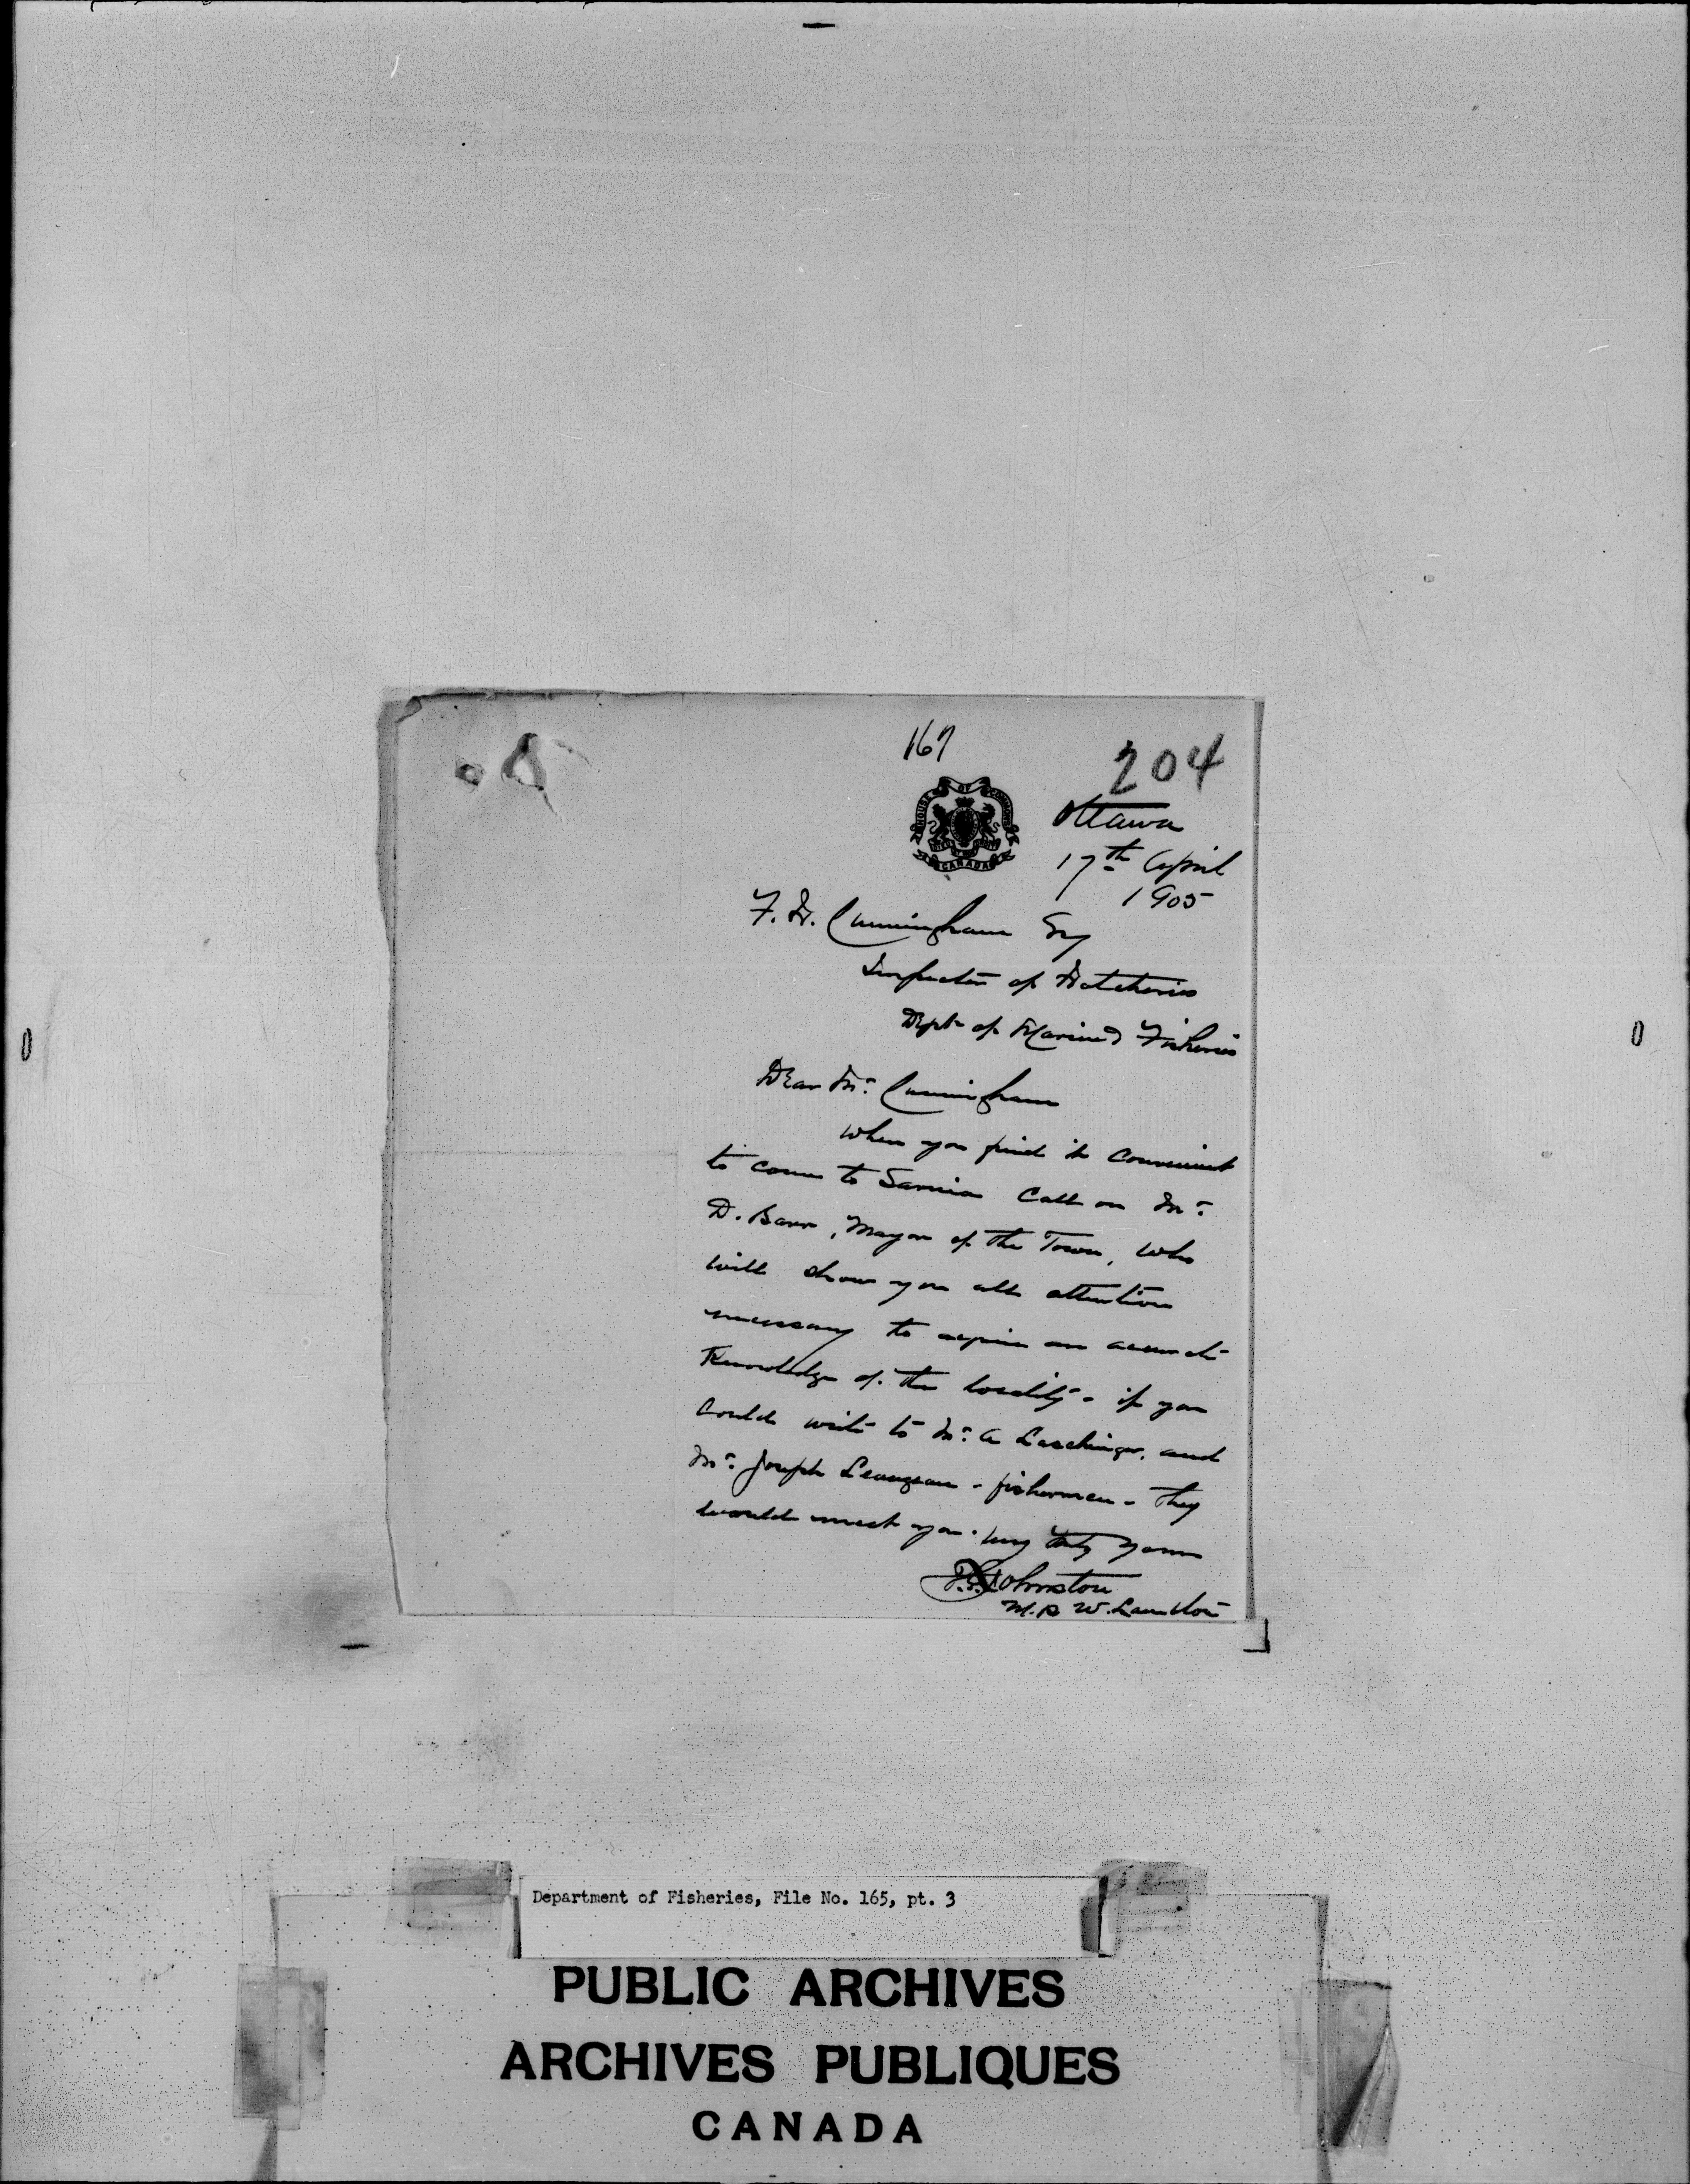 167
204
HOUSE OF COMMONS
CANADA
Ottawa
17th April
1905
F. H. Cunningham Esq
Inspector of Hatcheries
Dept of Marine & Fisheries
Dear Mr. Cunningham
When you find it convenient
to come to Sarnia Call on Mr.
D. Barr, Mayor of the Town, who
will show you all attention
necessary to acquire an accurate
Knowledge of the locality - if you
could write to Mr. A and
Mr. Joseph - fishermen - they
would meet you. Very truly yours
Johnston
M.P. W. Lambton
Department of Fisheries, File No. 165, pt. 3
PUBLIC ARCHIVES
ARCHIVES PUBLIQUES
CANADA